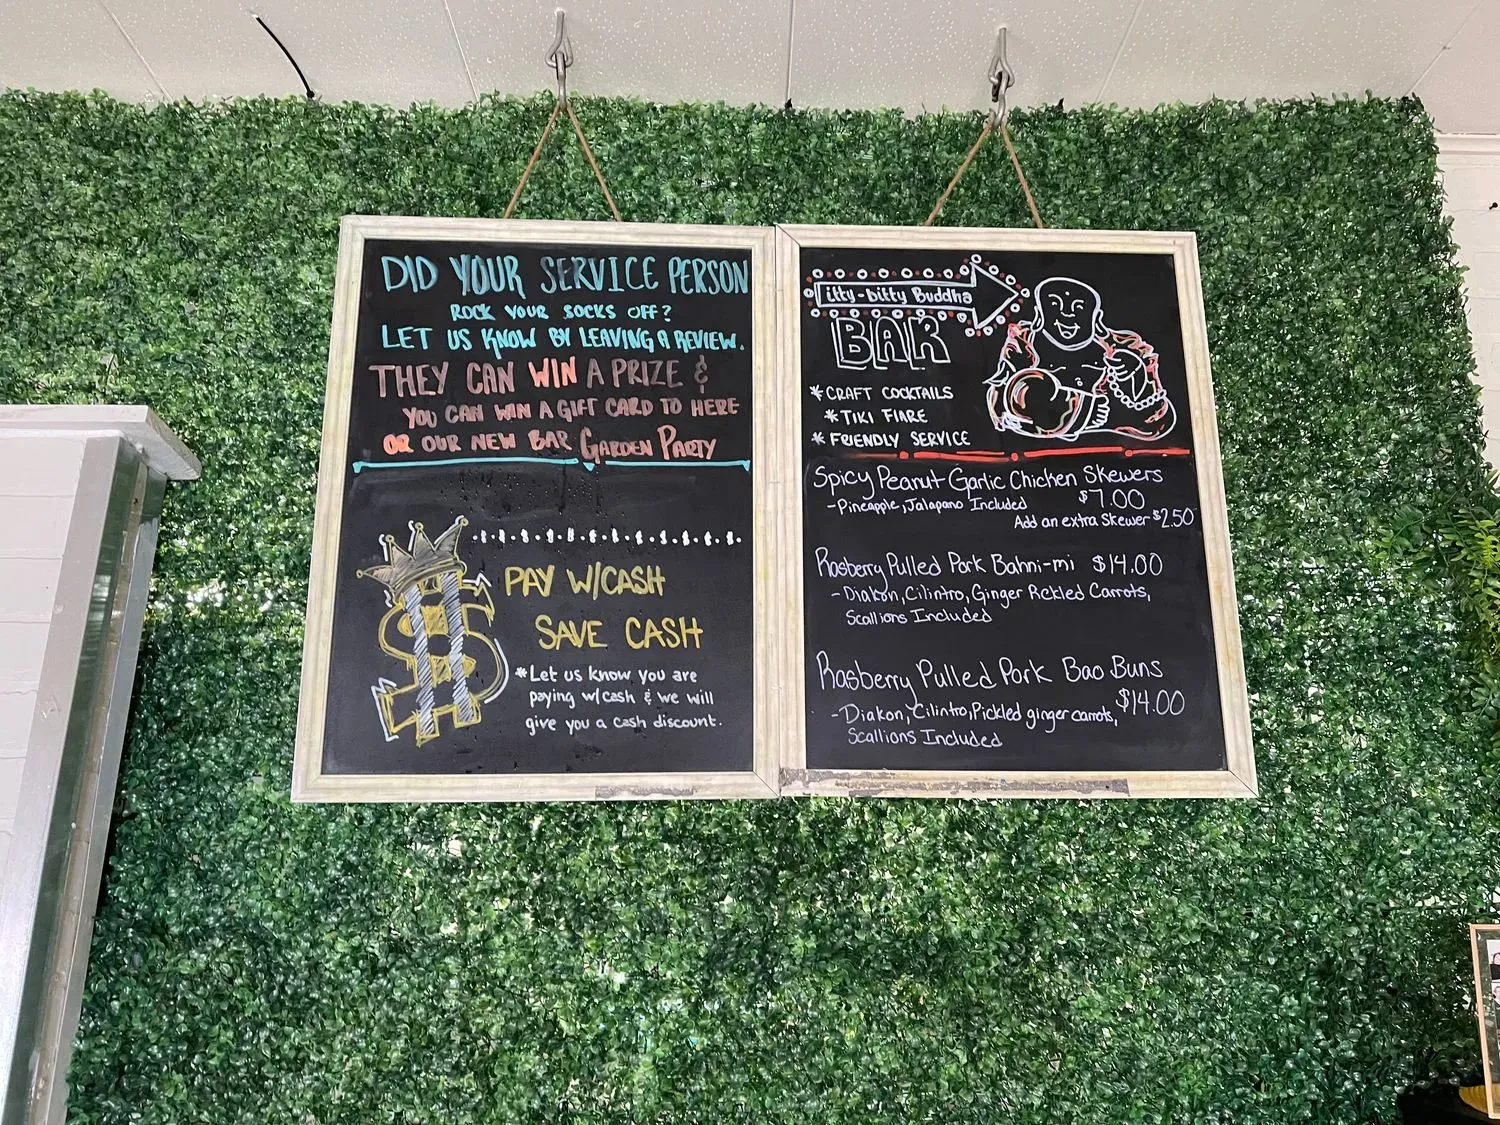 DID YOUR SERVICE PERSON
ROCK YOUR SOCKS OFF?
LET US KNOW BY LEAVING A REVIEW.
THEY CAN WIN A PRIZE &
YOU CAN WIN A GIFT CARD TO HERE
OR OUR NEW BAR GARDEN PARTY
PAY W/CASH
SAVE CASH
*Let us know you are
paying w/cash & we will
give you a cash discount.
itty-bitty Buddha
BAR
*CRAFT COCKTAILS
*TIKI FLARE
*FRIENDLY SERVICE
Spicy Peanut Garlic Chicken Skewers
-Pineapple, Jalapano Included $7.00
Add an extra Skewer $2.50
Rasberry Pulled Pork Bahni-mi $14.00
-Diakon, Cilintro, Ginger Pickled Carrots,
Scallions Included
Rasberry Pulled Pork Bao Buns
-Diakon, Cilintro, Pickled ginger carrots, $14.00
Scallions Included